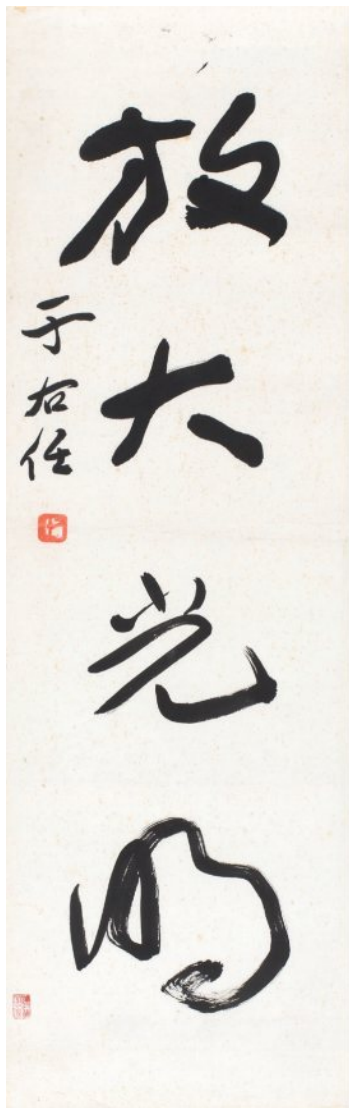 放大光明
于右任